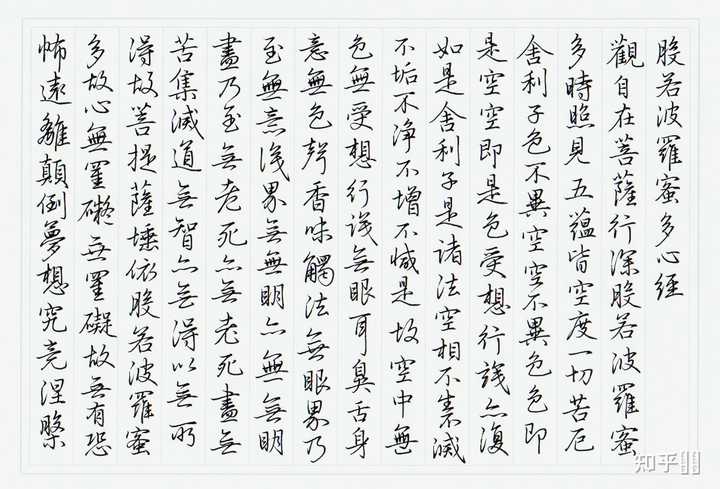 般若波羅蜜多心經
觀自在菩薩行深般若波羅蜜
多時照見五蘊皆空度一切苦厄
舍利子色不異空空不異色色即
是空空即是色受想行識亦復
如是舍利子是諸法空相不生不滅
不垢不净不增不減是故空中無
色無受想行識無眼耳鼻舌身
意無色聲香味觸法無眼界乃
至無意識界無無明亦無無明
盡乃至無老死亦無老死盡無
苦集滅道無智亦無得以無所
得故菩提薩埵依般若波羅蜜
多故心無罣礙無罣礙故無有恐
怖遠離顛倒夢想究竟涅槃
知乎